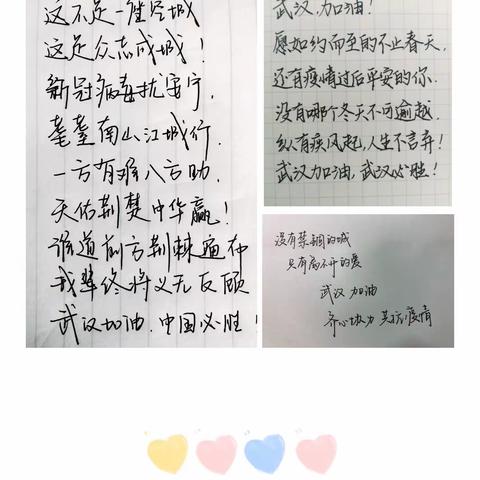 这不是一座空城
这是众志成城！
新冠病毒扰安宁，
耄耋南山江城行.
一方有难八方助，
天佑荆楚中华赢！
谁道前方荆棘遍布
我辈终将义无反顾
武汉加油.中国必胜！
武汉,加油！
愿如约而至的不止春天，
还有疫情过后平安的你.
没有哪个冬天不可逾越.
纵有疾风起,人生不言弃！
武汉加油,武汉必胜！
没有禁锢的城
只有离不开的爱
武汉 加油
齐心协力 共抗疫情